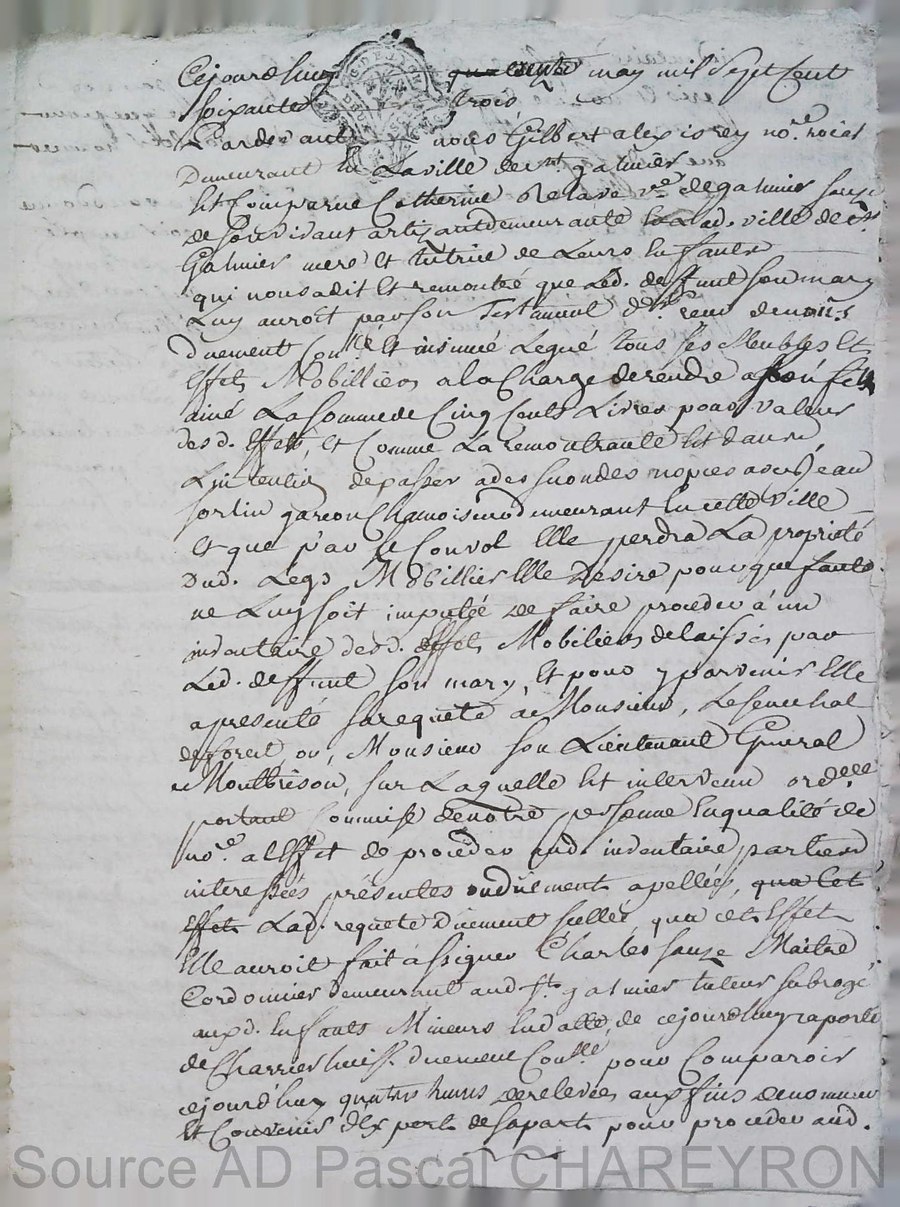 Cejourdhuy quatorze may mil sept cent
soixante trois
Pardevant nous Gilbert alexis rey no.re roial
Demeurant en Laville de st. galmier
Est Comparue Catherine v.ve de galmier sauze
de son vivant artizant demeurante Lad. ville de st
Galmier mere Et tutrice de Leurs Enfants
qui nous a dit Et remontré que Led. deffunt son mary
Luy auroit par son Testament
Duement Con.llé Et insinué Legué tous ses Meubles Et
Effets Mobilliers a la Charge de rendre a son fils
ainé La somme de Cinq Cents Livres pour valeur
desd. Effets, Et Comme La remontrante Est dans
L'intention de passer a de secondes nopces avec Jean
fortin garcon Chamoiseur demeurant En cette ville
Et que par ce Convol Elle perdra La proprieté
Dud. Legs Mobillier Elle Desire pour que faute
ne Luy soit imputée de faire proceder à un
indentaire desd. effets Mobiliers delaissés par
Led. deffunt son mary, Et pour y parvenir Elle
a presenté sa requete a Monsieur, Le senechal
de forest, ou, Monsieur son Lieutenant General
a Montbrison, sur Laquelle Est intervenu ord.ce
portant Commise de notre personne En qualité de
no.re a L'Effet de proceder aud. indentaire parties
interessées présentes ou duement apellées, qua Cet
effet Lad. requete Duement scellée qua cet Effet
Elle auroit fait assigner Charles sauze Maitre
Cordonnier demeurant aud st. galmier tuteur subrogé
auxd. Enfants Mineurs de cejourdhuy raporté
de Charrier huiss. duement Con.llé pour Comparoir
cejourd'huy quatres heures de relevée aux fins de nommer
Et Convenir d'Expert de sa part pour proceder aud.
Source AD Pascal CHAREYRON